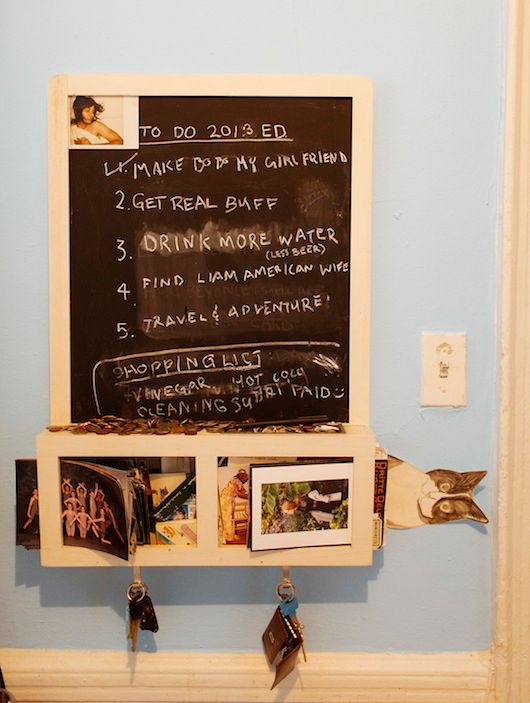 TO DO 2013 ED
1. MAKE DODO MY GIRLFRIEND
2. GET REAL BUFF
3. DRINK MORE WATER
(LESS BEER)
4. FIND LIAM AMERICAN WIFE
5. TRAVEL & ADVENTURE!
SHOPPING LIST
VINEGAR HOT COCO
CLEANING PAID